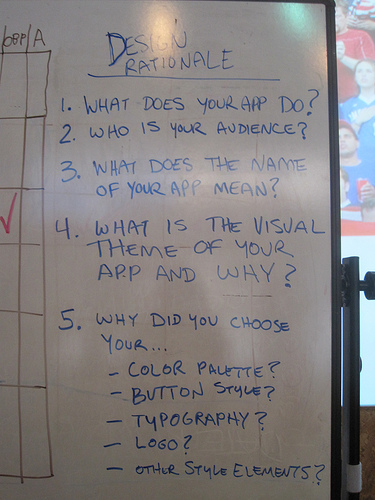 OBP/A
DESIGN
RATIONALE
1. WHAT DOES YOUR APP DO?
2. WHO IS YOUR AUDIENCE?
3. WHAT DOES THE NAME
OF YOUR APP MEAN?
4. WHAT IS THE VISUAL
THEME OF YOUR
APP AND WHY?
5. WHY DID YOU CHOOSE
YOUR...
- COLOR PALETTE?
- BUTTON STYLE?
- TYPOGRAPHY?
- LOGO?
- OTHER STYLE ELEMENTS?